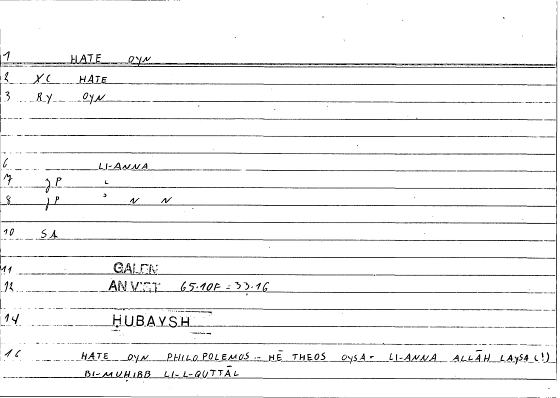 1 HATE OYN
2 XC HATE
3 RY OYN
6 LI-ANNA
7 JP L
8 JP ɔ N N
10 SA
11 GALEN
12 AN VIRT 65.10F = 33.16
14 ḤUBAYSH
16 HATE OYN PHILOPOLEMOS - HĒ THEOS OYSA - LI-ANNA ALLĀH LAYSA (!)
BI-MUḤIBB LI-L-QUTTĀL